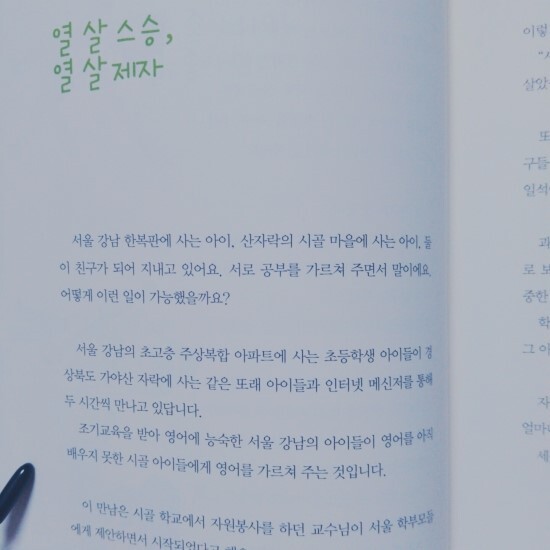 열 살 스승,
열 살 제자
서울 강남 한복판에 사는 아이. 산자락의 시골 마을에 사는 아이. 둘
이 친구가 되어 지내고 있어요. 서로 공부를 가르쳐 주면서 말이에요.
어떻게 이런 일이 가능했을까요?
서울 강남의 초고층 주상복합 아파트에 사는 초등학생 아이들이 경
상북도 가야산 자락에 사는 같은 또래 아이들과 인터넷 메신저를 통해
두 시간씩 만나고 있답니다.
조기교육을 받아 영어에 능숙한 서울 강남의 아이들이 영어를 아직
배우지 못한 시골 아이들에게 영어를 가르쳐 주는 것입니다.
이 만남은 시골 학교에서 자원봉사를 하던 교수님이 서울 학부모들
에게 제안하면서 시작되었다고
이렇
살았
또
구들
일석
로 보
중한
학
그 이
자
얼마
세